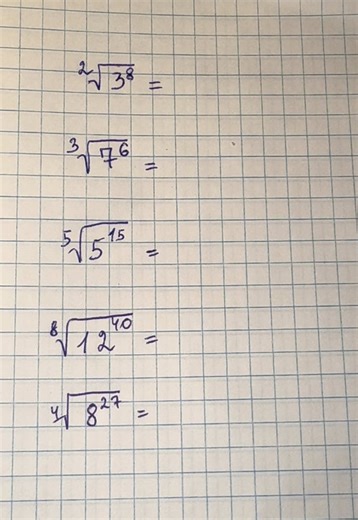 ²√3⁸ =
³√7⁶ =
⁵√5¹⁵ =
⁸√12⁴⁰ =
⁴√8²⁷ =